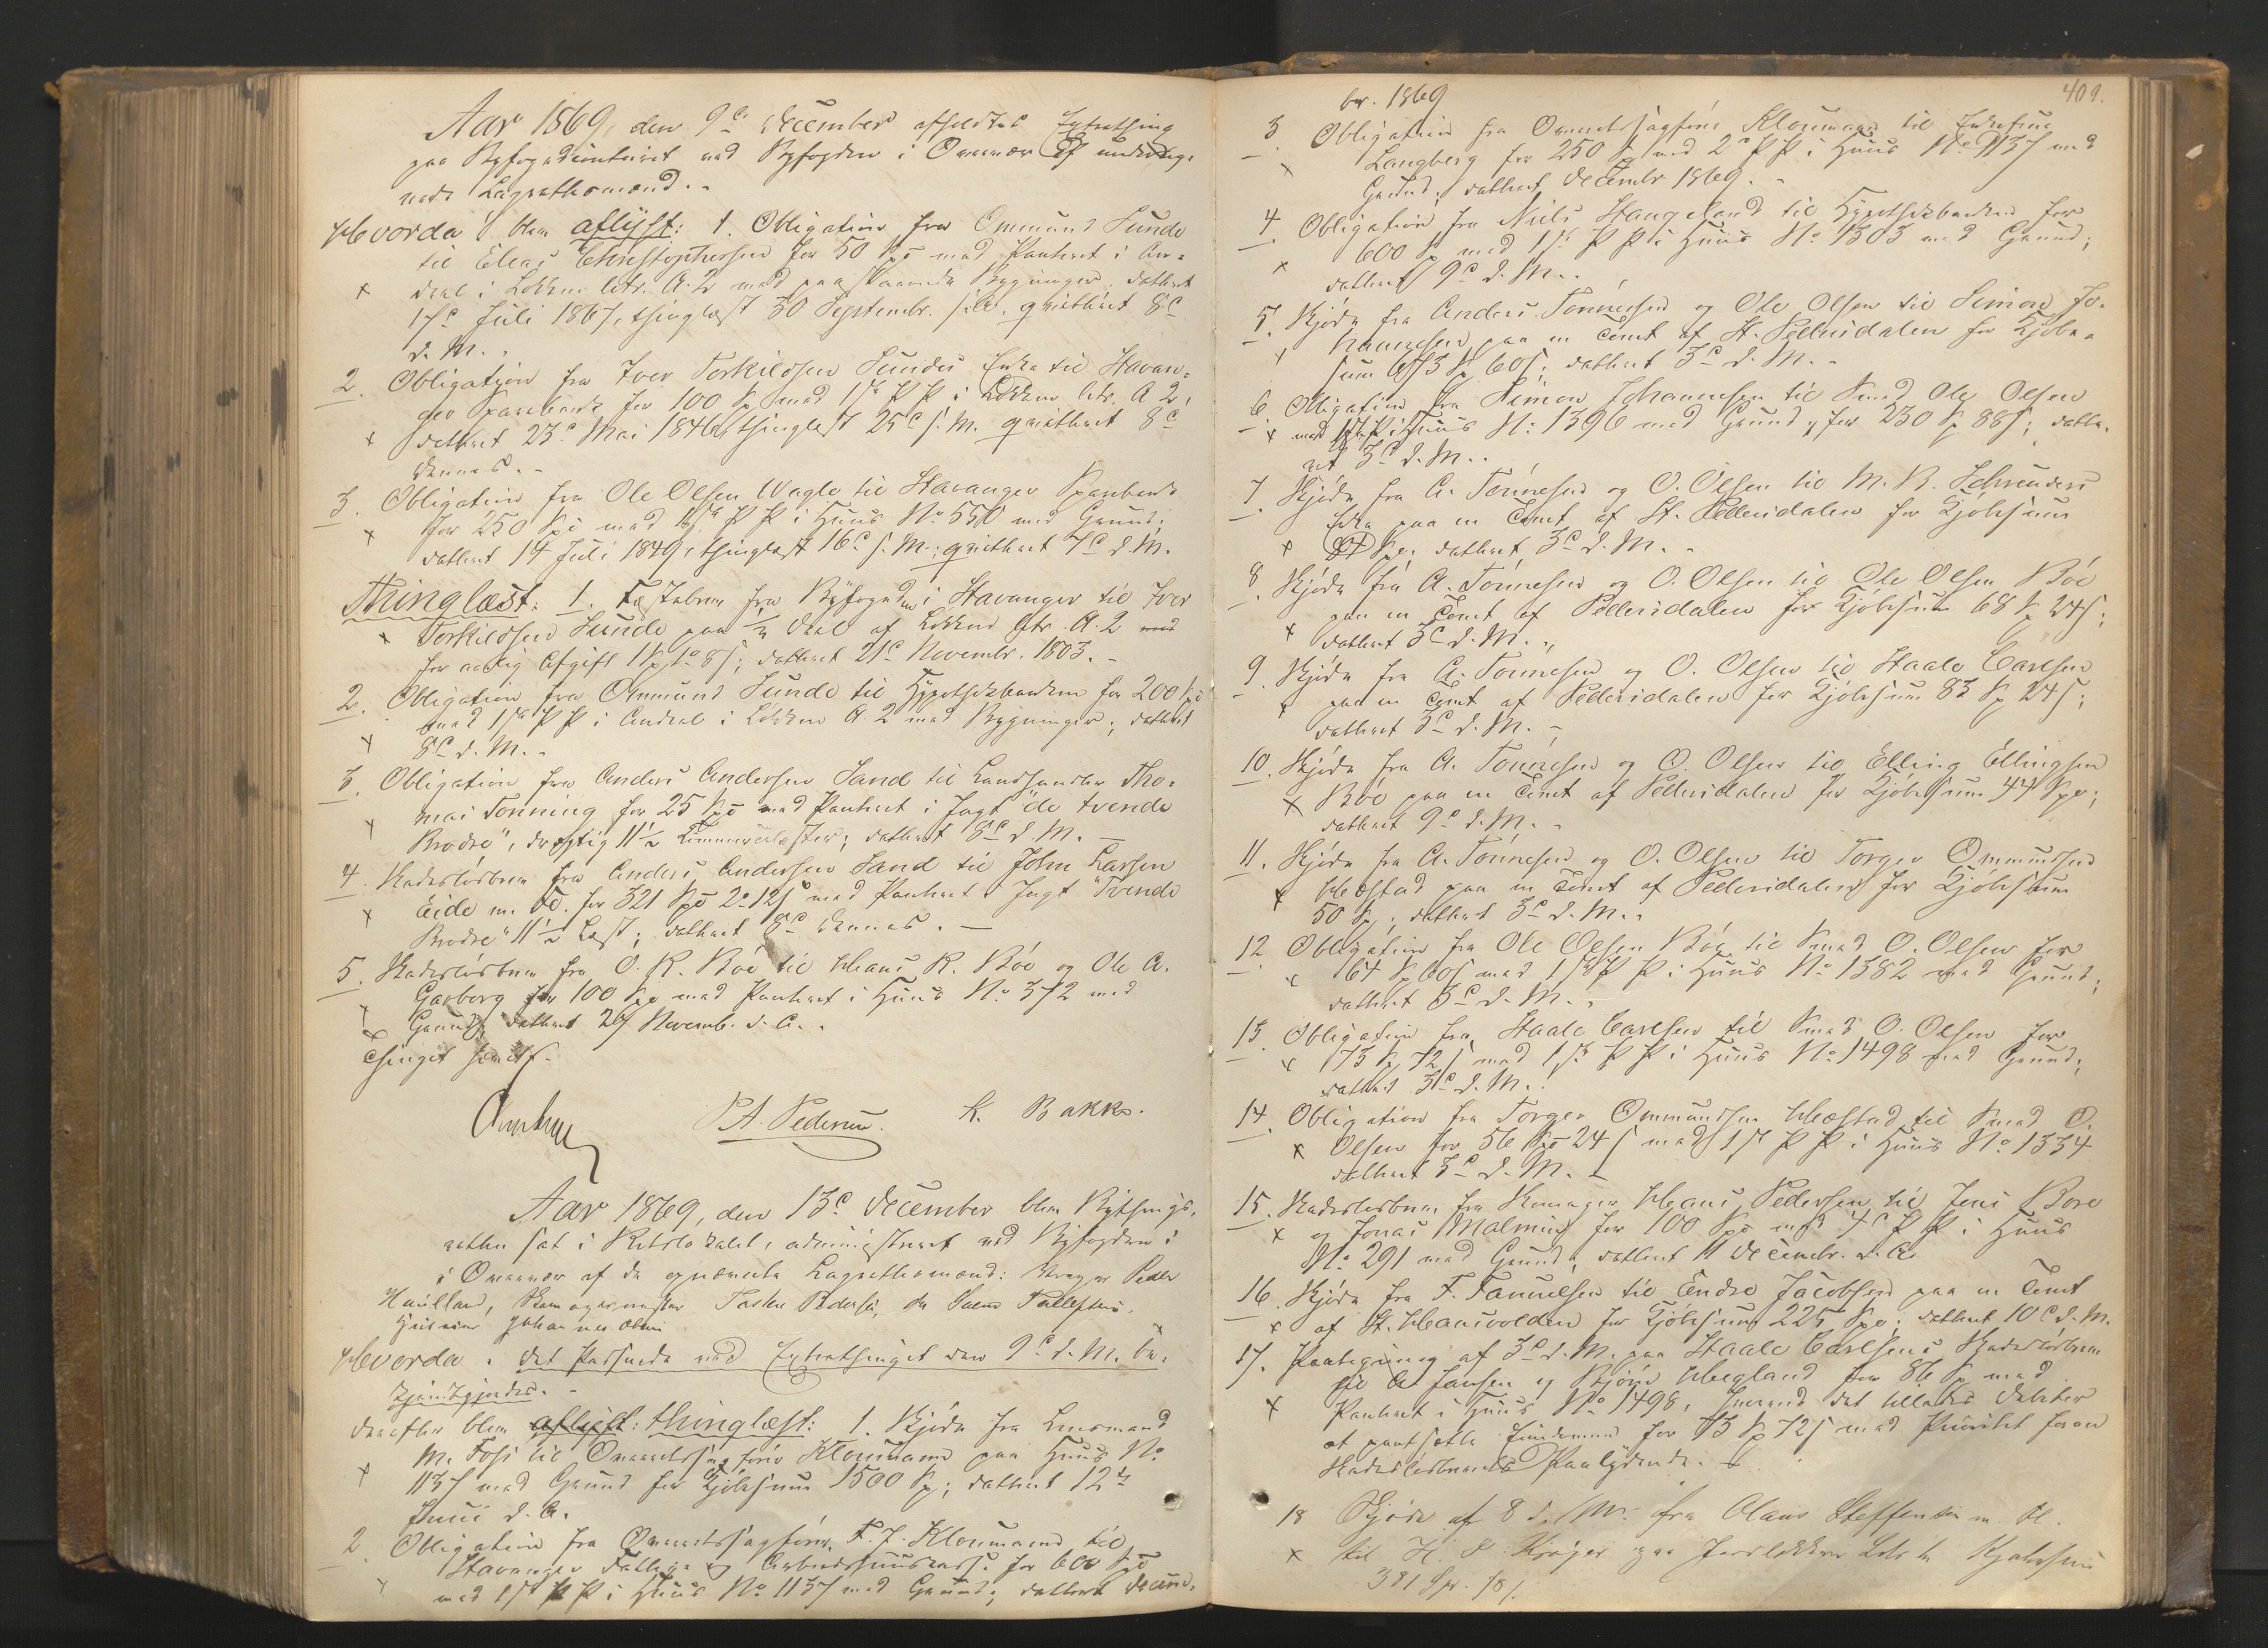 Aar 1869, den 9de December afholdtes Extrathing
paa Byfogedcontoiret ved Byfogden i Overvær af underteg-
nede Lagrettesmænd.-
Hvorda blev aflyst: 1. Obligation fra Ommund Sunde
til Elias Christophersen for 50 Spd med Panteret i An-
deel i Løkken Litr. A. 2 med paastaaende Bygninger, dateret
17de Juli 1867, thinglæst 30 Septembr. s. A. qvitteret 8de
d. M..
2. Obligation fra Iver Torkildsen Sundes Enke til Stavan-
ger Sparebank for 100 Sp med 1ste P P i Løkken Litr. A 2,
dateret 23de Mai 1846, thinglæst 25de s. M. qvitteret 8de
dennes.-
3. Obligation fra Ole Olsen Wagle til Stavanger Sparebank
for 250 Spd med 1ste P P i Huus No 550 med Grund;
dateret 14 Juli 1849, thinglæst 16de s. M.; qvitteret 7de d. M.
Thinglæst: 1. Festebrev fra Byfogden i Stavanger til Iver
Torkildsen Sunde paa 1/2 Deel af Løkken Litr. A. 2
for aarlig Afgift; dateret 21de Novembr. 1803.-
2. Obligation fra Ommund Sunde til Hypothekbanken for 200 Spd
med 1ste P P i Andeel i Løkken A 2 med Bygninger; dateret
8de d. M.-
3. Obligation fra Anders Andersen Sand til Landhandler Tho-
mas Tonning for 25 Spd med Panteret i Jagt "de tvende
Brødre", drægtig 11 1/2 Commercelæster; dateret 8de d. M. -
4. Skadesløsbrev fra Anders Andersen Sand til John Larsen
Eide m. Fl. for 321 Spd 2. 12 s med Panteret i Jagt "Tvende
Brødre" 11 1/2 Læst; dateret 8de dennes. -
5. Skadesløsbrev fra O. R. Bøe til Hans R. Bøe og Ole A.
Garborg for 100 Spd med Panteret i Huus No 372 med
Grund, dateret 27 Novemb. d. A..
Thinget hævet.
P A. Pedersen. K. Bakke.
Aar 1869, den 13de December blev Bythings-
retten sat i Retslokalet, administreret ved Byfogden i
i Overvær af de opnævnte Lagrettesmænd: Peder
Haulland, Skomagermester Pedersen,
Johannes Olsen
Hvorda: det Passerede ved Extrathinget den 9de d. M. be-
kjendtgjordes.-
derefter blev aflyst: thinglæst: 1. Skjøde fra Lensmand
M. Foss til Overretssagfører Kloumann paa Huus No
1137 med Grund for Kjøbesum 1500 Sp; dateret 12te
Juni d. A.
2. Obligation fra Overretssagfører F. J. Kloumann til
Stavanger Fattig- og Arbeidshuuskasse for 600 Spd
med 1ste P P i Huus No 1137 med Grund; dateret Decem-
409.
ber. 1869
3. Obligation fra Overretssagfører Kloumann til Enkefrue
Langberg for 250 Sp med 2de P P i Huus No 1137 med
Grund; dateret Decembr 1869.-
4. Obligation fra Niels Haugeland til Hypothekbanken for
600 Sp med 1ste P P i Huus No 1303 med Grund;
dateret 9de d. M..
5. Skjøde fra Anders Tønnesen og Ole Olsen til Simon Jo-
hannesen paa en Tomt af St. Pedersdalen for Kjøbe-
sum 60 s; dateret 3de d. M.-
6. Obligation fra Simon Johannesen til Smed Ole Olsen
med 1ste P P i Huus No 1396 med Grund, for 230 Sp 88 s; date-
ret 3de d. M..
7. Skjøde fra A. Tønnesen og O. Olsen til M. B. Schrøders
Enke paa en Tomt af St. Pedersdalen for Kjøbesum
Spd. dateret 3de d. M.-
8. Skjøde fra A. Tønnesen og O. Olsen til Ole Olsen Bøe
paa en Tomt af Pedersdalen for Kjøbesum 68 Sp 24 s;
dateret 3de d. M..
9. Skjøde fra A. Tønnesen og O. Olsen til Staale Carlsen
paa en Tomt af Pedersdalen for Kjøbesum 83 Sp 24 s;
dateret 3de d. M.-
10. Skjøde fra A. Tønnesen og O. Olsen til Elling Ellingsen
Bøe paa en Tomt af Pedersdalen for Kjøbesum 44 Spd;
dateret 9de d. M.-
11. Skjøde fra A. Tønnesen og O. Olsen til Torger Ommundsen
Hæstad paa en Tomt af Pedersdalen for Kjøbesum
50 Sp; dateret 3de d. M..
12. Obligation fra Ole Olsen Bøe til Smed O. Olsen for
64 Sp 60 s med 1ste P P i Huus No 1382 med Grund,
dateret 3de d. M..
13. Obligation fra Staale Carlsen til Smed O. Olsen for
73 Sp 72 s med 1ste P P i Huus No 1498 med Grund;
dateret 3de d. M..
14. Obligation fra Torger Ommundsen Hæstad til Smed O.
Olsen for 56 Spd 24 s med 1ste P P i Huus No 1334
dateret 3de d. M. -
15. Skadesløsbrev fra Skomager Hans Pedersen til Jens Bore
og Jonas Malming for 100 Spd med 4de P P i Huus
No 291 med Grund; dateret 11 Decembr. d. A.
16. Skjøde fra F. Samuelsen til Endre Jacobsen paa en Tomt
af St. Hansvolden for Kjøbesum 225 Spd; dateret 10de d. M.
17. Paategning af 3de d. M. paa Staale Carlsens Skadesløsbrev
til A Jansen og Bjørn Hegland for 86 Sp med
Panteret i Huus No 1498, hvorved det tillades Debitor
at pantsætte Eiendommen for 73 Sp 72 s med Prioritet foran
Skadesløsbrevets Paalydende.
18 Skjøde af 8 d. M. fra Olaus Steffensen m. Fl.
til H. S. Krøger paa Jordløkken Kjøbesum
381 Spd.